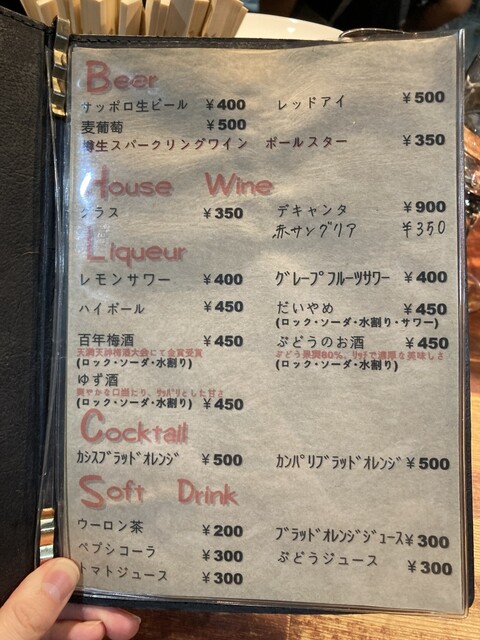 Beer
サッポロ生ビール ¥400 レッドアイ ¥500
麦葡萄 ¥500
樽生スパークリングワイン ポールスター ¥350
House Wine
グラス ¥350 デキャンタ ¥900
赤サングリア ¥350
Liqueur
レモンサワー ¥400 グレープフルーツサワー ¥400
ハイボール ¥450 だいやめ ¥450
(ロック・ソーダ・水割り・サワー)
百年梅酒 ¥450 ぶどうのお酒 ¥450
天満天神梅酒大会にて金賞受賞 ぶどう果実80%、リッチで濃厚な美味しさ
(ロック・ソーダ・水割り) (ロック・ソーダ・水割り)
ゆず酒
爽やかな口当たり、サッパリとした甘さ
(ロック・ソーダ・水割り) ¥450
Cocktail
カシスブラッドオレンジ ¥500 カンパリブラッドオレンジ ¥500
Soft Drink
ウーロン茶 ¥200 ブラッドオレンジジュース ¥300
ペプシコーラ ¥300 ぶどうジュース ¥300
トマトジュース ¥300